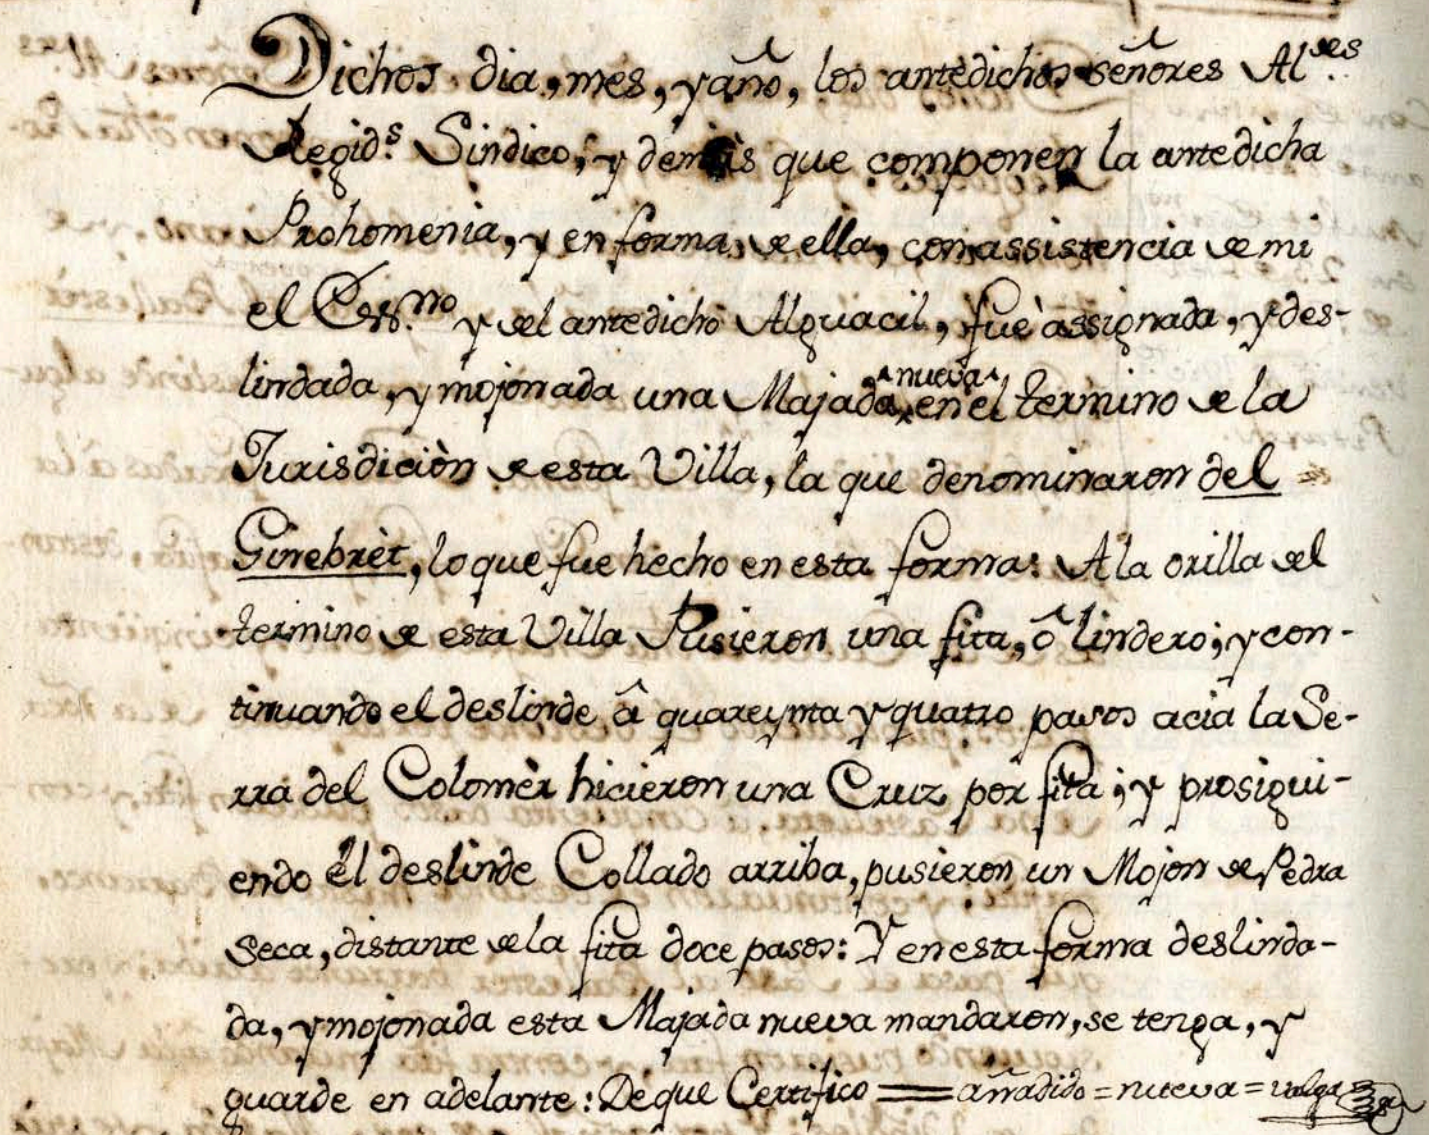 Dichos dia, mes, y año, los antedichos señores Al.des
Regid.s Sindico, y demàs que componen la antedicha
Prohomenia, y en forma, de ella, con assistencia de mi
el Ess.no y del antedicho Alguacil, fuè assignada, y des-
lindada, y mojonada una Majada ^nueva^ en el termino de la
Jurisdiciòn de esta Villa, la que denominaron del
Ginebrèt, lo que fue hecho en esta forma: A la orilla del
termino de esta Villa Pusieron una fita, ô lindero; y con-
tinuando el deslinde â quareynta y quatro pasos acia la Se-
rra del Colomèr hicieron una Cruz por fita; y prosigui-
endo el deslinde Collado arriba, pusieron un Mojon de Pedra
seca, distante de la fita doce pasos: Y en esta forma deslinda-
da, y mojonada esta Majada nueva mandaron, se tenga, y
guarde en adelante: De que Certifico = añadido = nueva = valga